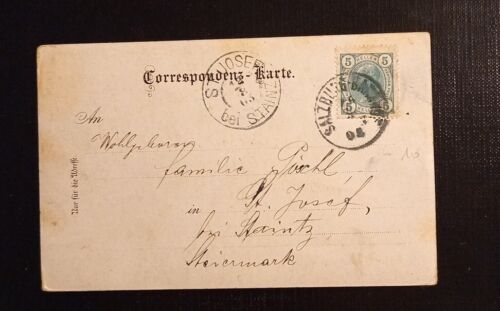 Correspondenz-Karte.
ST. JOSEF
bei STAINZ
5 5
5 5
SALZBURG
An
Wohlgeboren
Familie Pöschl
in St. Josef,
bei Staintz
Steiermark
Nur für die Adresse
10